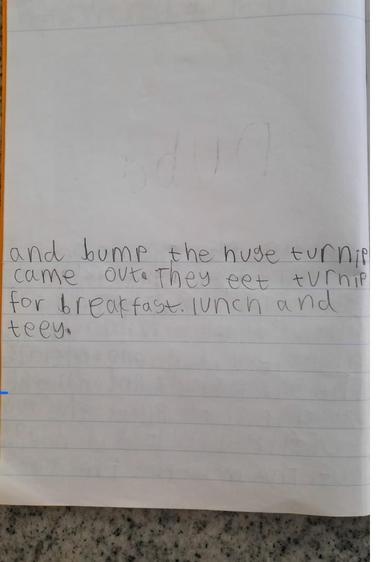 and bump the huge turnip
came out. They eet turnip
for breakfast. lunch and
teey.